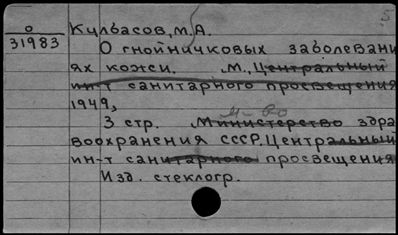 О
31983
Кулбасов, М.А.
О гнойничковых заболевани
ях кожи. М., Центральный
ин-т санитарного просвещения
1949,
м-во
3 стр. Министерство здра
воохранения СССР. Центральный
ин-т санитарного просвещения
Изд. стеклогр.